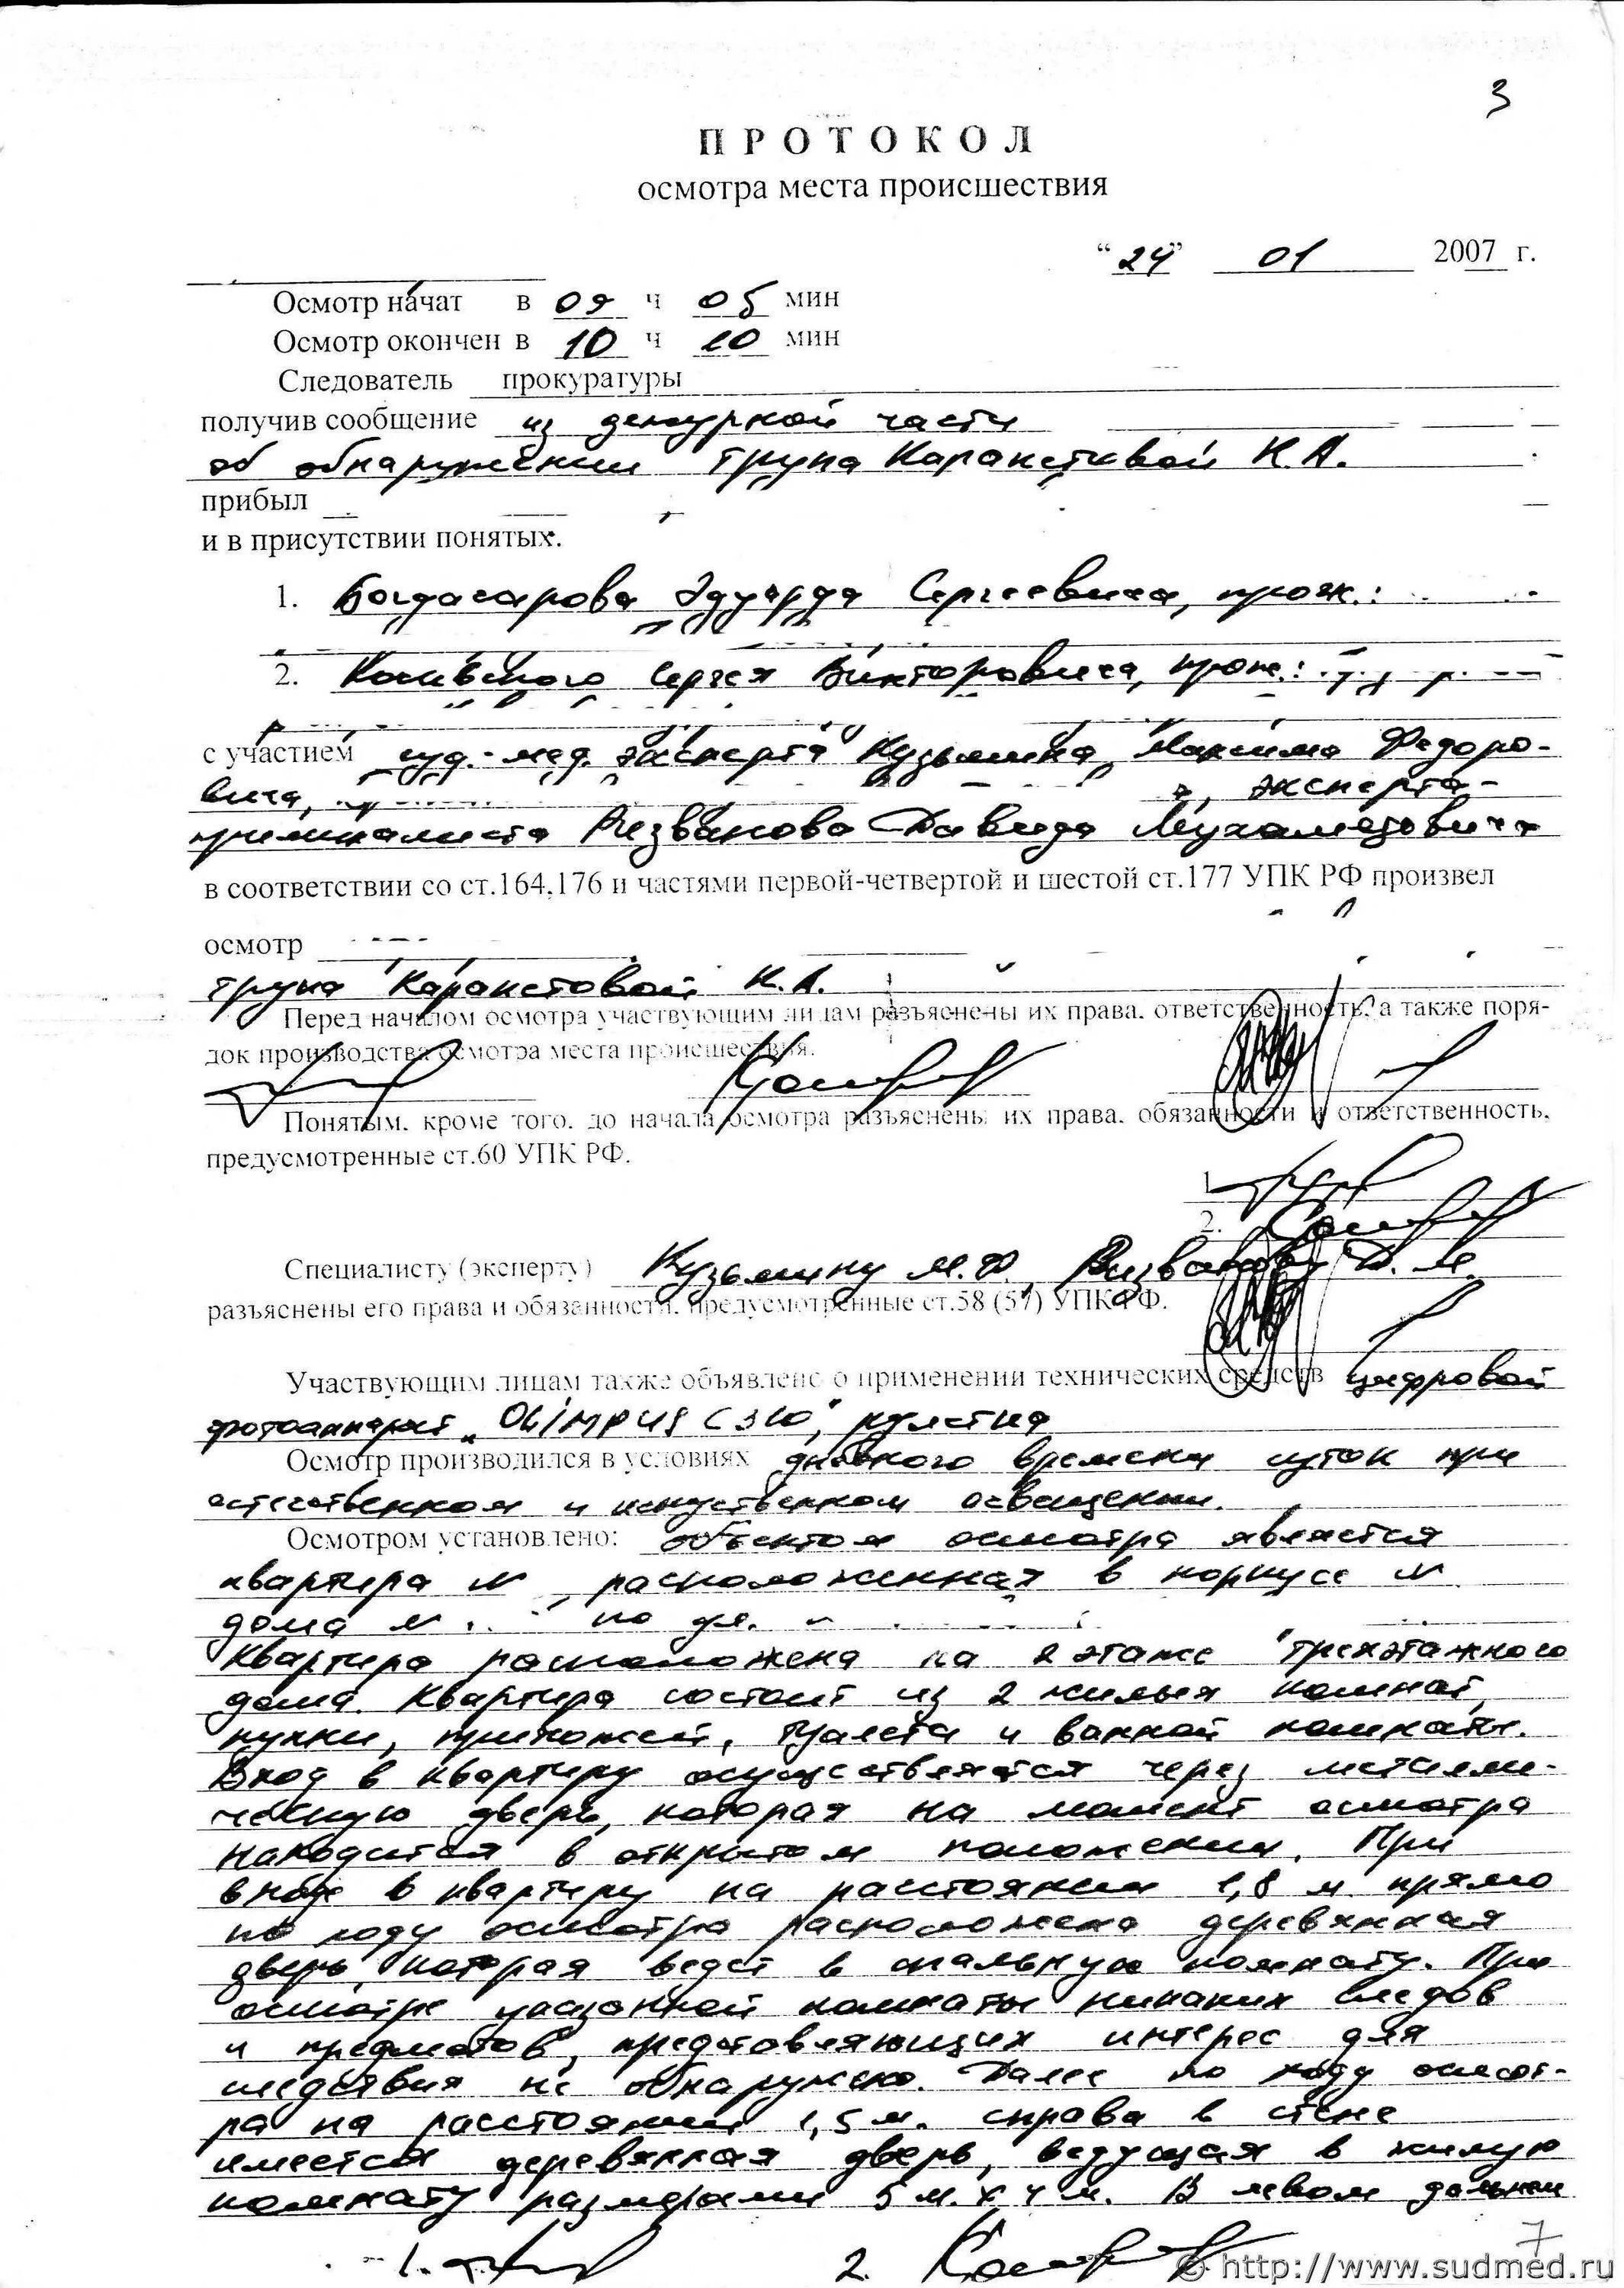 3
ПРОТОКОЛ
осмотра места происшествия
“24” 01 2007 г.
Осмотр начат в 09 ч 05 мин
Осмотр окончен в 10 ч 20 мин
Следователь прокуратуры
получив сообщение из дежурной части
об обнаружении трупа Каракетовой К.А.
прибыл
и в присутствии понятых.
1. Богдасарова Эдуарда Сергеевича, прож.:
2. Сергея Викторовича, прож.:
с участием суд.-мед. эксперта Кузьмина Максима Федоро-
вича, эксперта-
криминалиста Ризванова Давида Мухамедовича
в соответствии со ст.164,176 и частями первой-четвертой и шестой ст.177 УПК РФ произвел
осмотр
трупа Каракетовой К.А.
Перед началом осмотра участвующим лицам разъяснены их права, ответственность, а также поря-
док производства осмотра места происшествия.
Понятым, кроме того, до начала осмотра разъяснены их права, обязанности и ответственность,
предусмотренные ст.60 УПК РФ.
1
2.
Специалисту (эксперту) Кузьмину М.Ф., Ризванову Д.М.
разъяснены его права и обязанности, предусмотренные ст.58 (57) УПК РФ.
Участвующим лицам также объявлено о применении технических средств цифровой
фотоаппарат „Olimpus C310”, рулетка
Осмотр производился в условиях дневного времени суток при
естественном и искуственном освещении.
Осмотром установлено: объектом осмотра является
квартира №, расположенная в корпусе №
дома № по ул.
Квартира расположена на 2 этаже трехэтажного
дома. Квартира состоит из 2 жилых комнат,
кухни, прихожей, туалета и ванной комнаты.
Вход в квартиру осуществляется через металли-
ческую дверь, которая на момент осмотра
находится в открытом положении. При
входе в квартиру на расстоянии 1,8 м прямо
по ходу осмотра расположена деревянная
дверь, которая ведет в спальную комнату. При
осмотре указанной комнаты никаких следов
и предметов, представляющих интерес для
следствия не обнаружено. Далее по ходу осмот-
ра на расстоянии 1,5 м. справа в стене
имеется деревянная дверь, ведущая в жилую
комнату размерами 5 м. х 4 м. В левом дальнем
1.
2.
7
© http://www.sudmed.ru